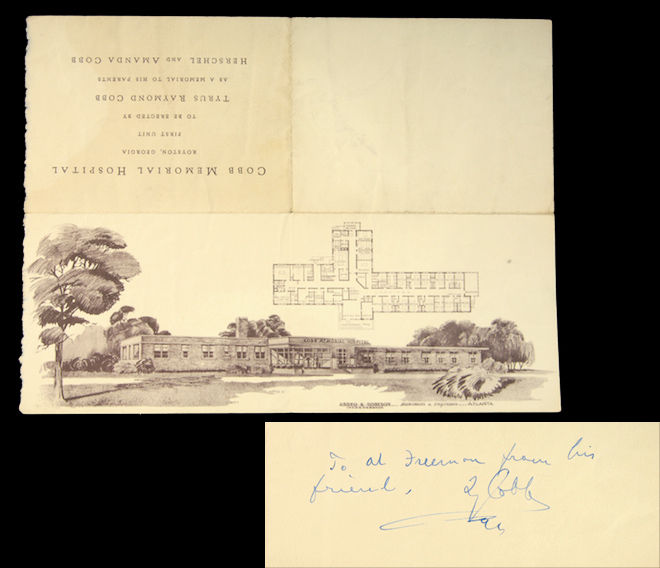 COBB MEMORIAL HOSPITAL
ROYSTON, GEORGIA
FIRST UNIT
TO BE ERECTED BY
TYRUS RAYMOND COBB
AS A MEMORIAL TO HIS PARENTS
HERSCHEL AND AMANDA COBB
COBB MEMORIAL HOSPITAL
ABREU & ROBESON ARCHITECTS & ENGINEERS ATLANTA
To al Freeman from his
friend, Ty Cobb